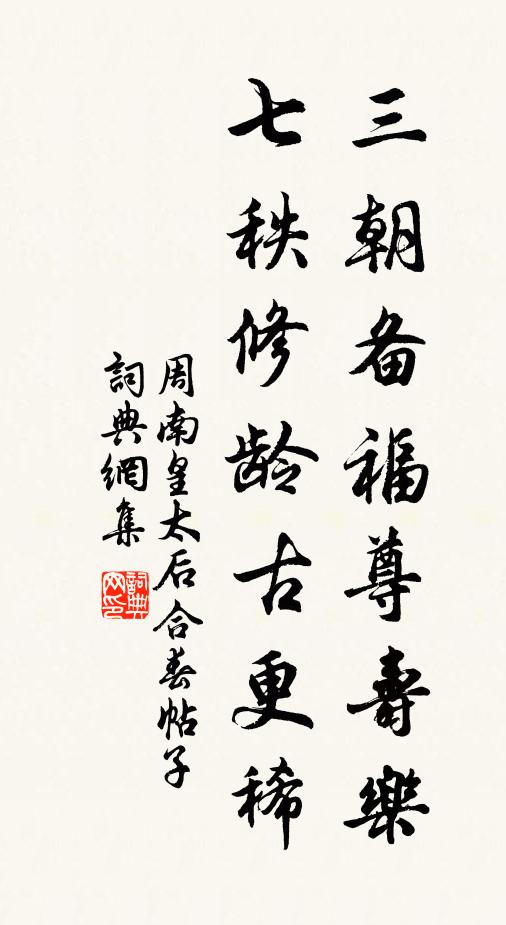 三朝备福尊壽樂
七秩修龄古更稀
周南皇太后合春帖子
詞典網集
詞典网印